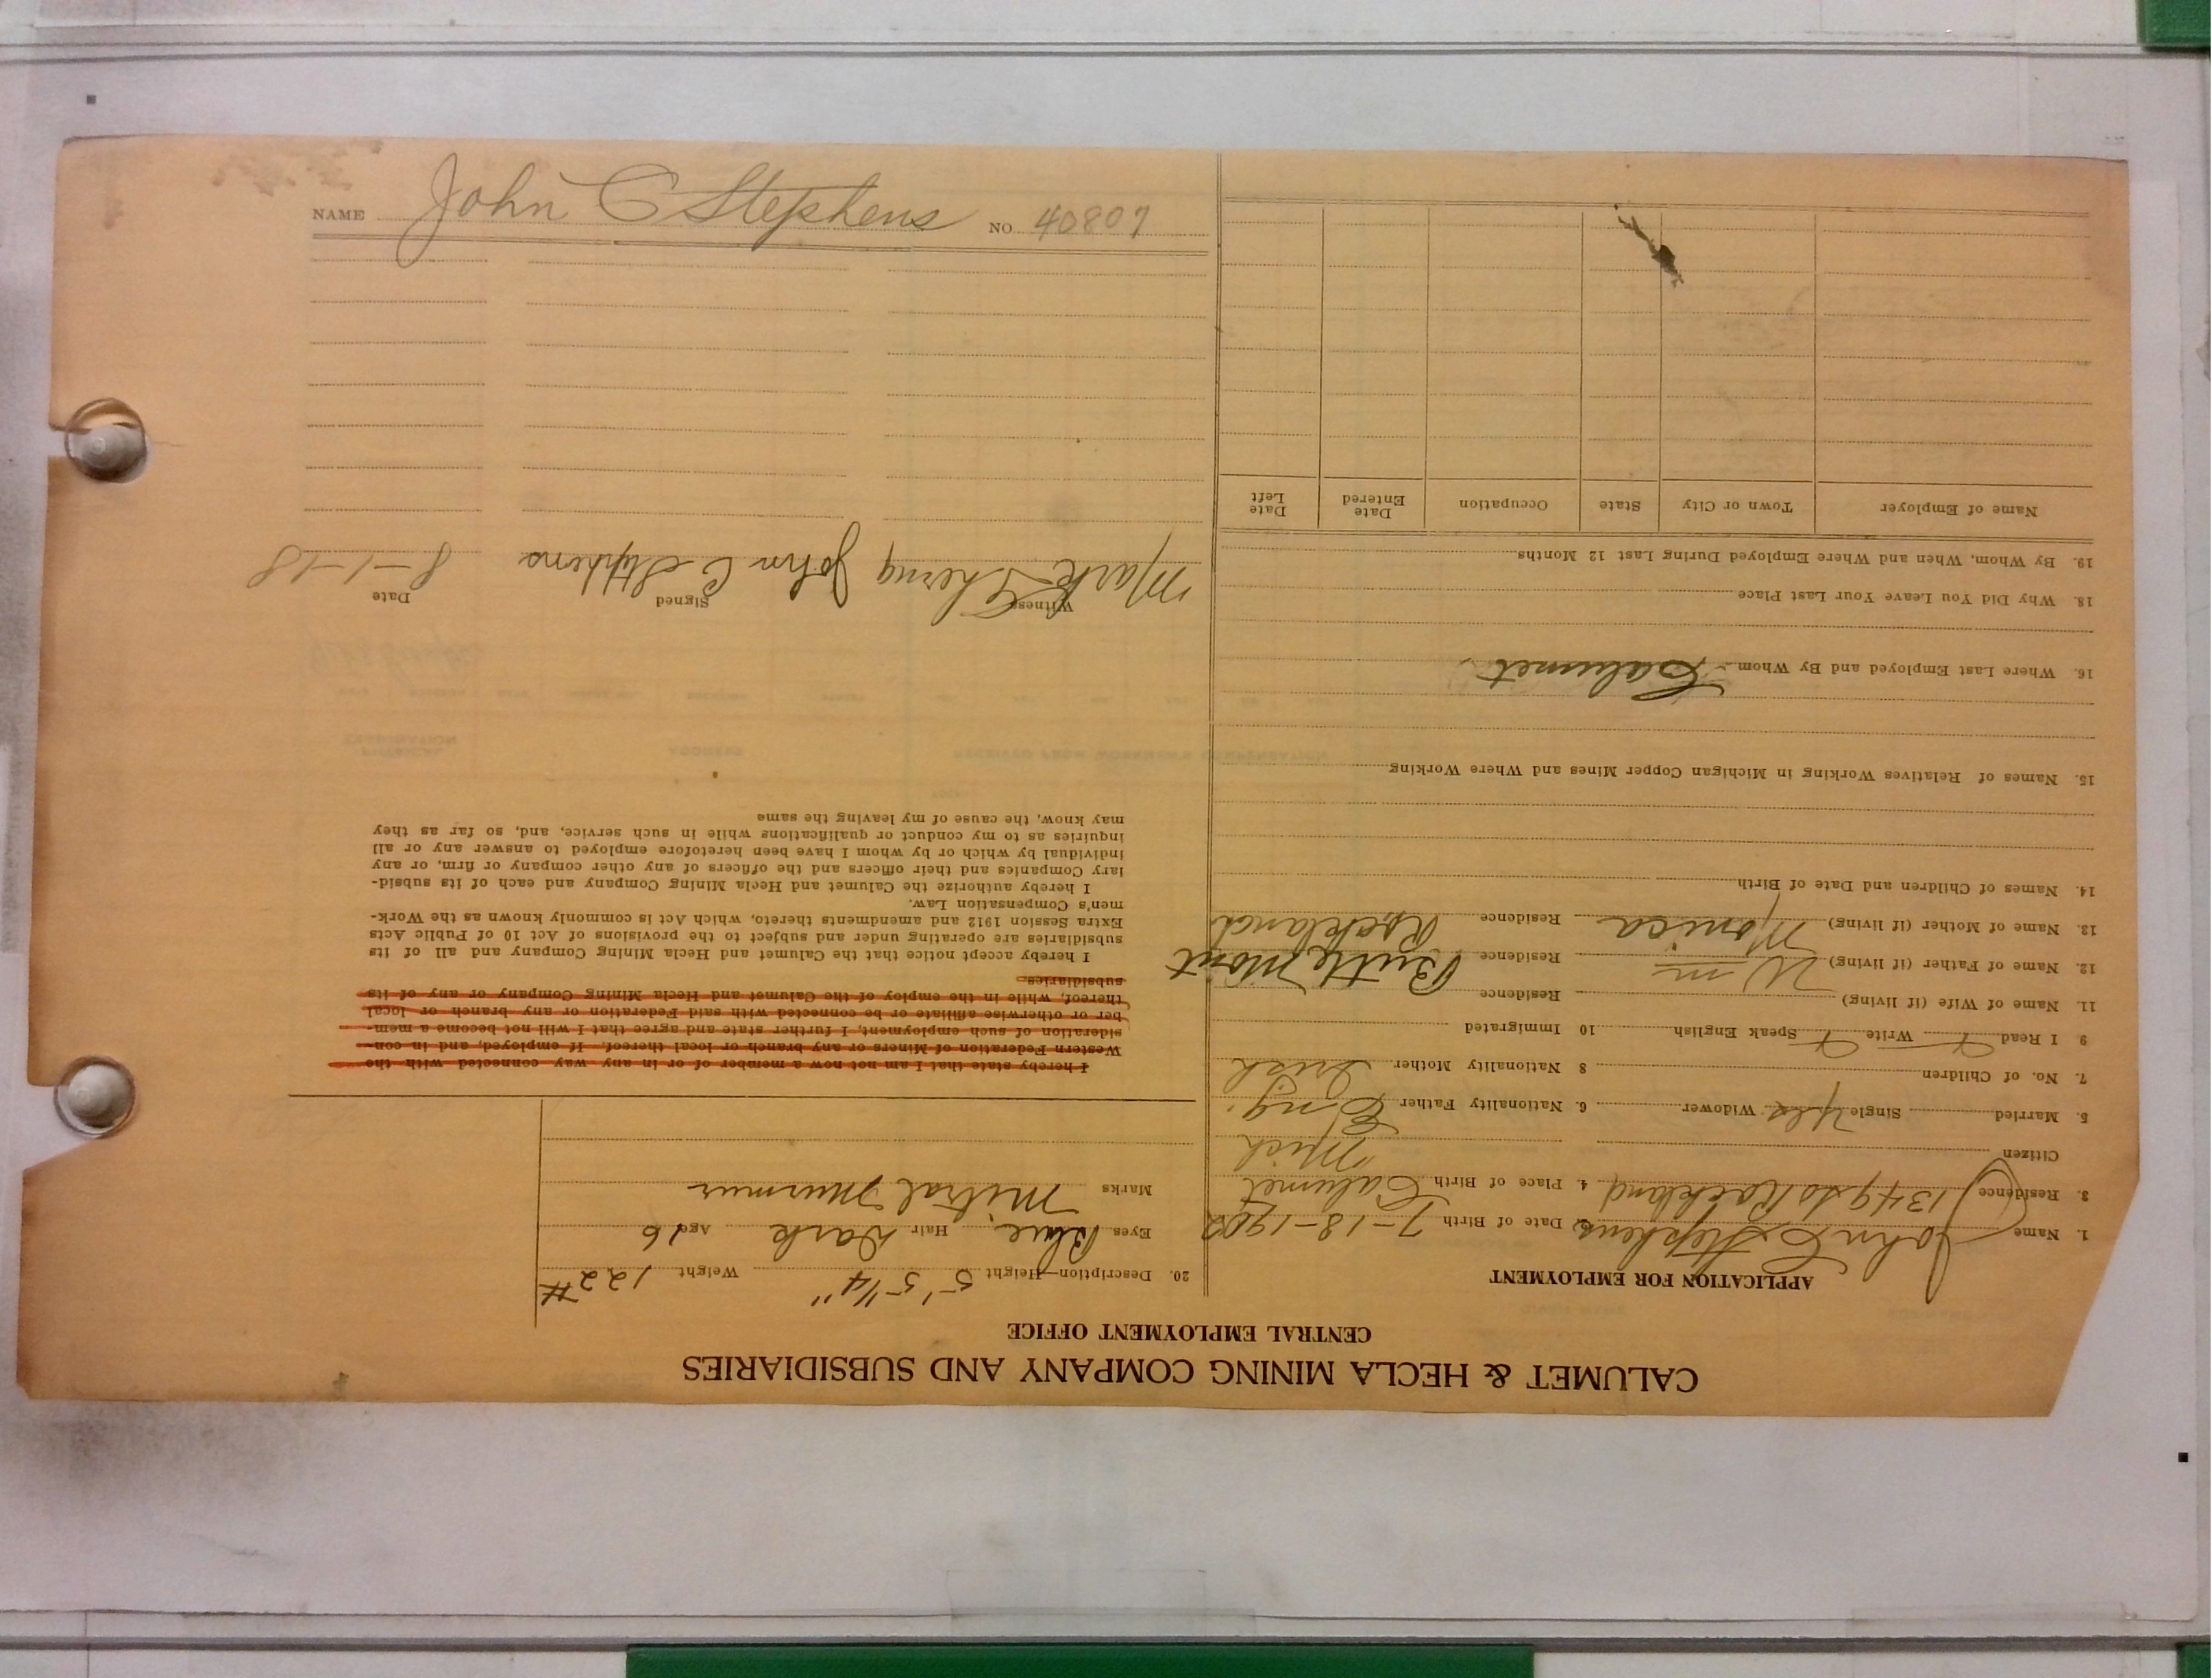 CALUMET & HECLA MINING COMPANY AND SUBSIDIARIES
CENTRAL EMPLOYMENT OFFICE
APPLICATION FOR EMPLOYMENT
1. Name John C Stephens 2 Date of Birth 7-18-1902
3. Residence 1349 So Rockland 4. Place of Birth Calumet
Mich
Citizen
5. Married Single Yes Widower 6. Nationality Father Eng.
7. No. of Children 8 Nationality Mother Irish
9 I Read Write Speak English 10 Immigrated
11. Name of Wife (if living) Residence
12. Name of Father (if living) Wm Residence Butte Mont
13. Name of Mother (if living) Monica Residence Rockland
14. Names of Children and Date of Birth
15. Names of Relatives Working in Michigan Copper Mines and Where Working
16. Where Last Employed and By Whom Calumet
18. Why Did You Leave Your Last Place
19. By Whom, When and Where Employed During Last 12 Months
Name of Employer Town or City State Occupation Date Entered Date Left
20. Description—Height 5' 5 1/4" Weight 122#
Eyes Blue Hair Dark Age 16
Marks Mitral Murmur
I hereby state that I am not now a member of or in any way connected with the
Western Federation of Miners or any branch or local thereof. If employed, and in con-
sideration of such employment, I further state and agree that I will not become a mem-
ber or otherwise affiliate or be connected with said Federation or any branch or local
thereof, while in the employ of the Calumet and Hecla Mining Company or any of its
subsidiaries.
I hereby accept notice that the Calumet and Hecla Mining Company and all of its
subsidiaries are operating under and subject to the provisions of Act 10 of Public Acts
Extra Session 1912 and amendments thereto, which Act is commonly known as the Work-
men's Compensation Law.
I hereby authorize the Calumet and Hecla Mining Company and each of its subsid-
iary Companies and their officers and the officers of any other company or firm, or any
individual by which or by whom I have been heretofore employed to answer any or all
inquiries as to my conduct or qualifications while in such service, and, so far as they
may know, the cause of my leaving the same
Witness Signed Date
Mark John C Stephens 8-1-18
NAME John C Stephens NO 40807